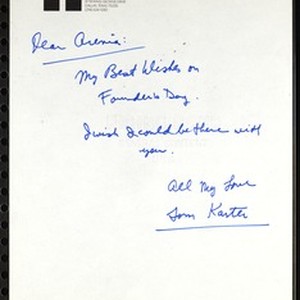 Dear Arenia:
My Best Wishes on
Founder's Day.
I wish I could be there with
you.
All My Love
Tom Karter